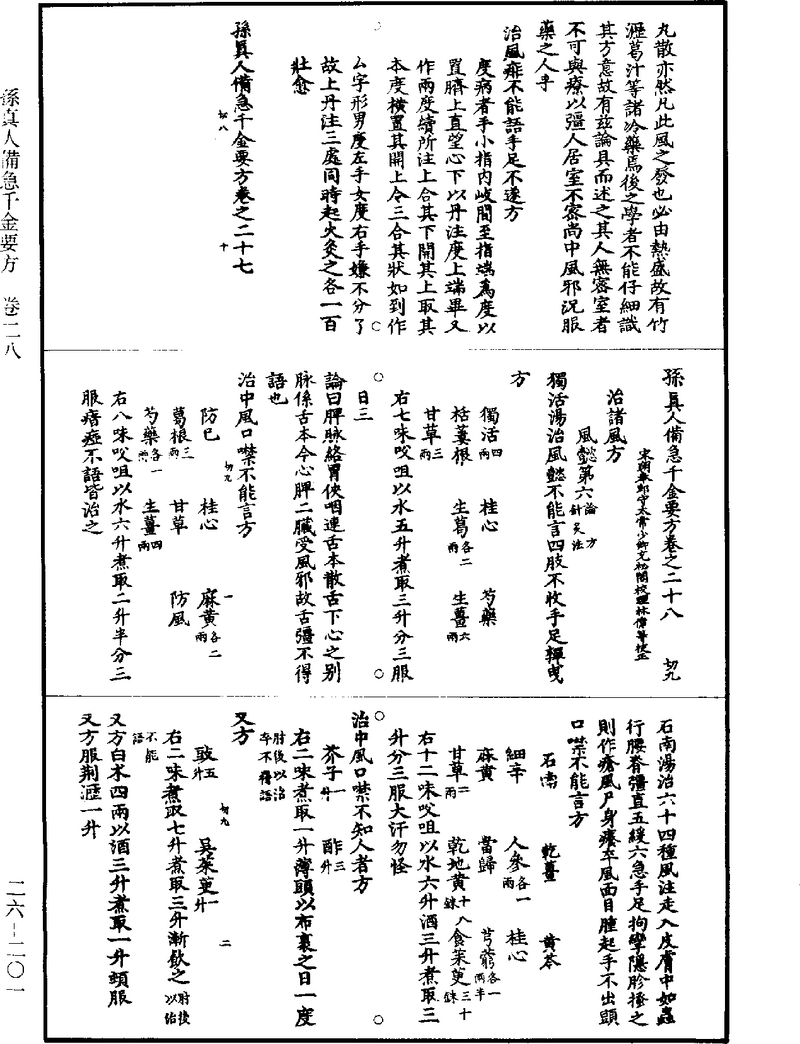 丸散亦然凡此風之發也必由熱盛故有竹
瀝葛汁等諸冷藥焉後之學者不能仔細識
其方意故有茲論具而述之其人無密室者
不可與療以彊人居室不密尚中風邪況服
藥之人乎
治風痱不能語手足不遂方
度病者手小指內歧間至指端為度以
置臍上直望心下以丹注度上端畢又
作兩度續所注上合其下開其上取其
本度橫置其開上令三合其狀如到作
厶字形男度左手女度右手嫌不分了
故上丹注三處同時起火灸之各一百
壯愈
孫真人備急千金要方卷之二十七
切八 十
孫真人備急千金要方卷之二十八 切九
宋朝奉郎守太常少卿充秘閣校理林億等校正
治諸風方
風懿第六 論 方 針灸法
獨活湯治風懿不能言四肢不收手足嚲曳
方
獨活四兩 桂心 芍藥
栝蔞根 生葛各二兩 生薑六兩
甘草三兩
右七味㕮咀以水五升煮取三升分三服
日三
論曰脾脉絡胃俠咽連舌本散舌下心之別
脉係舌本今心脾二臟受風邪故舌彊不得
語也
治中風口噤不能言方
切九 一
防已 桂心 麻黃各二兩
葛根三兩 甘草 防風
芍藥各一兩 生薑四兩
右八味㕮咀以水六升煮取二升半分三
服瘖瘂不語皆治之
石南湯治六十四種風注走入皮膚中如蟲
行腰脊彊直五緩六急手足拘攣隱胗搔之
則作瘡風尸身癢卒風面目腫起手不出頭
口噤不能言方
石南 乾薑 黃芩
細辛 人參各一兩 桂心
麻黃 當歸 芎藭各一兩半
甘草二兩 乾地黃十八銖 食茱萸三十銖
右十二味㕮咀以水六升酒三升煮取三
升分三服大汗勿怪
治中風口噤不知人者方
芥子一升 酢三升
右二味煮取一升薄頭以布裹之日一度
肘後以治卒不得語
又方
切九 二
豉五升 吳茱萸一升
右二味煮取七升煮取三升漸飲之肘後以治不能語
又方白朮四兩以酒三升煮取一升頓服
又方服荆瀝一升
孫真人備急千金要方 卷二八
二六-二〇一